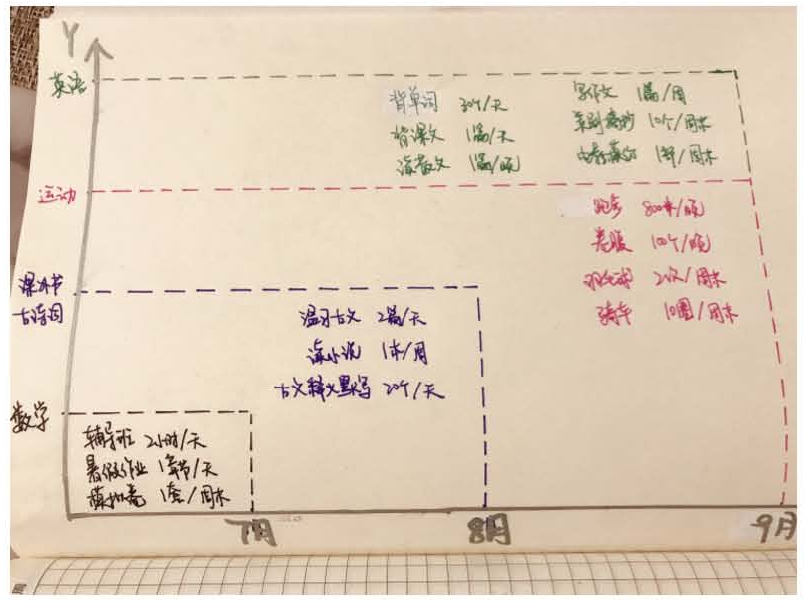 Y
英语
背单词 30个/天
背课文 1篇/天
读散文 1篇/晚
写作文 1篇/周
类别摘抄 10个/周末
1部/周末
运动
跑步 800米/晚
卷腹 100个/晚
羽毛球 2次/周末
骑车 10圈/周末
课外书
古诗词
温习古文 2篇/天
读小说 1本/周
古文释义默写 20个/天
数学
辅导班 2小时/天
暑假作业 1章节/天
模拟卷 1套/周末
7月
8月
9月